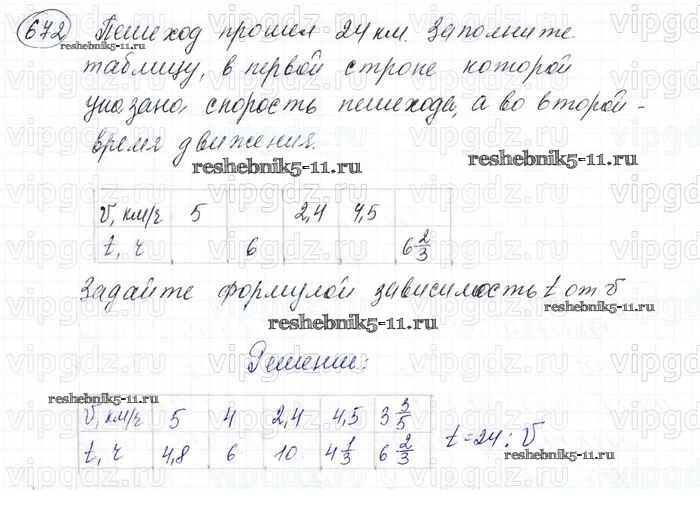 672 Пешеход прошел 24 км. Заполните
таблицу, в первой строке которой
указана скорость пешехода, а во второй -
время движения.
v, км/ч 5 2,4 4,5
t, ч 6 6 2/3
Задайте формулой зависимость t от v
Решение:
v, км/ч 5 4 2,4 4,5 3 3/5
t, ч 4,8 6 10 4 1/3 6 2/3
t = 24 : v
reshebnik5-11.ru
reshebnik5-11.ru
reshebnik5-11.ru
reshebnik5-11.ru
reshebnik5-11.ru
reshebnik5-11.ru
vipgdz.ru